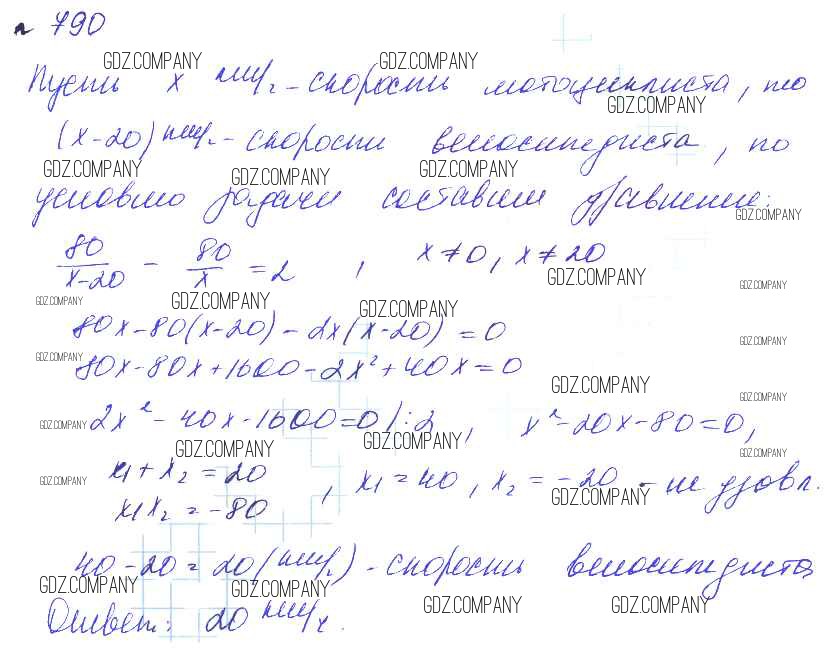 № 790
GDZ.COMPANY GDZ.COMPANY
Пусть x км/ч – скорость мотоциклиста, то
GDZ.COMPANY
(x-20) км/ч – скорость велосипедиста, по
GDZ.COMPANY GDZ.COMPANY GDZ.COMPANY
условию задачи составим уравнение:
GDZ.COMPANY
80/(x-20) - 80/x = 2 , x≠0, x≠20
GDZ.COMPANY GDZ.COMPANY
GDZ.COMPANY GDZ.COMPANY GDZ.COMPANY
80x-80(x-20)-2x(x-20)=0
GDZ.COMPANY
GDZ.COMPANY 80x-80x+1600-2x²+40x=0
GDZ.COMPANY GDZ.COMPANY
GDZ.COMPANY 2x²-40x-1600=0/:2, x²-20x-80=0,
GDZ.COMPANY GDZ.COMPANY GDZ.COMPANY
GDZ.COMPANY x₁+x₂=20
x₁x₂=-80 , x₁=40, x₂=-20 - не удовл.
GDZ.COMPANY
40-20=20(км/ч) - скорость велосипедиста
GDZ.COMPANY GDZ.COMPANY
GDZ.COMPANY GDZ.COMPANY
Ответ: 20 км/ч.